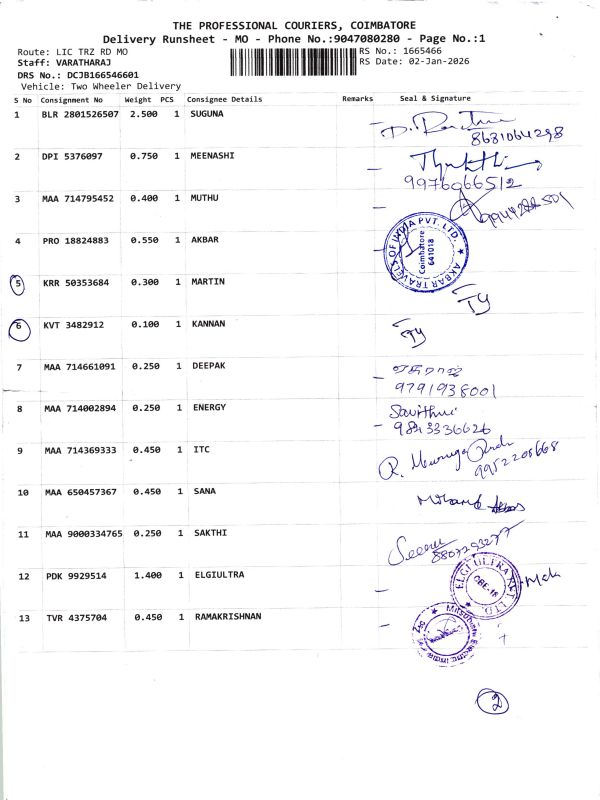 THE PROFESSIONAL COURIERS, COIMBATORE
Delivery Runsheet - MO - Phone No.:9047080280 - Page No.:1
Route: LIC TRZ RD MO
RS No.: 1665466
Staff: VARATHARAJ
RS Date: 02-Jan-2026
DRS No.: DCJB166546601
Vehicle: Two Wheeler Delivery
S No Consignment No Weight PCS Consignee Details Remarks Seal & Signature
1 BLR 2801526507 2.500 1 SUGUNA
8681064298
2 DPI 5376097 0.750 1 MEENASHI
9976966512
3 MAA 714795452 0.400 1 MUTHU
4 PRO 18824883 0.550 1 AKBAR
AKBAR TRAVELS OF INDIA PVT. LTD.
Coimbatore
641018
5 KRR 50353684 0.300 1 MARTIN
6 KVT 3482912 0.100 1 KANNAN
7 MAA 714661091 0.250 1 DEEPAK
9791938001
8 MAA 714002894 0.250 1 ENERGY
9843336626
9 MAA 714369333 0.450 1 ITC
9952208668
10 MAA 650457367 0.450 1 SANA
11 MAA 9000334765 0.250 1 SAKTHI
8807293277
12 PDK 9929514 1.400 1 ELGIULTRA
ELGI ULTRA PVT. LTD.
CBE-18
13 TVR 4375704 0.450 1 RAMAKRISHNAN
2